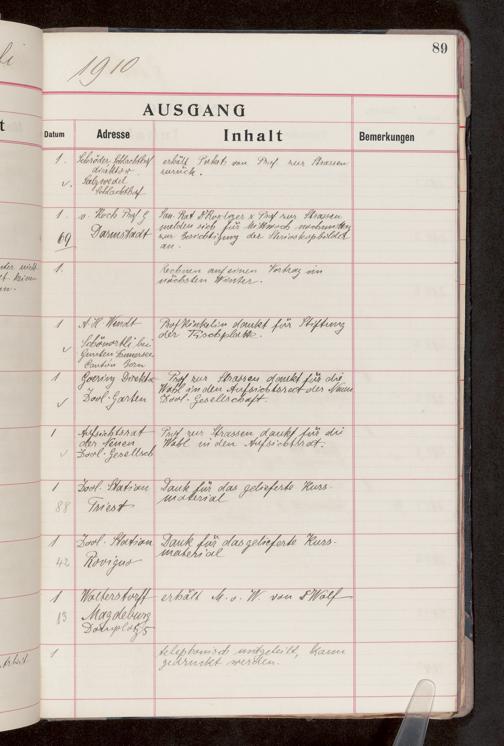 89
1910
AUSGANG
Datum Adresse Inhalt Bemerkungen
1. Schröder Schlachthof erhält von Prof zur Strassen
direktor zurück.
v. Salzwedel
Schlachthof
1. v. Koch Prof G San Rat Dr & Prof zur Strassen
69 Darmstadt melden sich für Mittwoch nachmittag
zur Besichtigung der
an.
1. Rechnen auf einen Vortrag im
nächsten Winter.
1 A H Wendt Prof Kinkelin dankt für Stiftung
der Tischplatte.
v bei
Canton Bern
1 Goering Direktor Prof zur Strassen dankt für die
Wahl in den Aufsichtsrat der Neuen
v Zool. Garten Zool. Gesellschaft.
1 Aufsichtsrat Prof zur Strassen dankt für die
der Neuen Wahl in den Aufsichtsrat.
v Zool. Gesellsch
1 Zool. Station Dank für das gelieferte Kurs-
88 Triest material
1 Zool. Station Dank für das gelieferte Kurs-
42 Rovigno material
1 Wolterstorff erhält M. v. W. von Dr Wolf
13 Magdeburg
Domplatz 5
1 telephonisch mitgeteilt, kann
gedruckt werden.